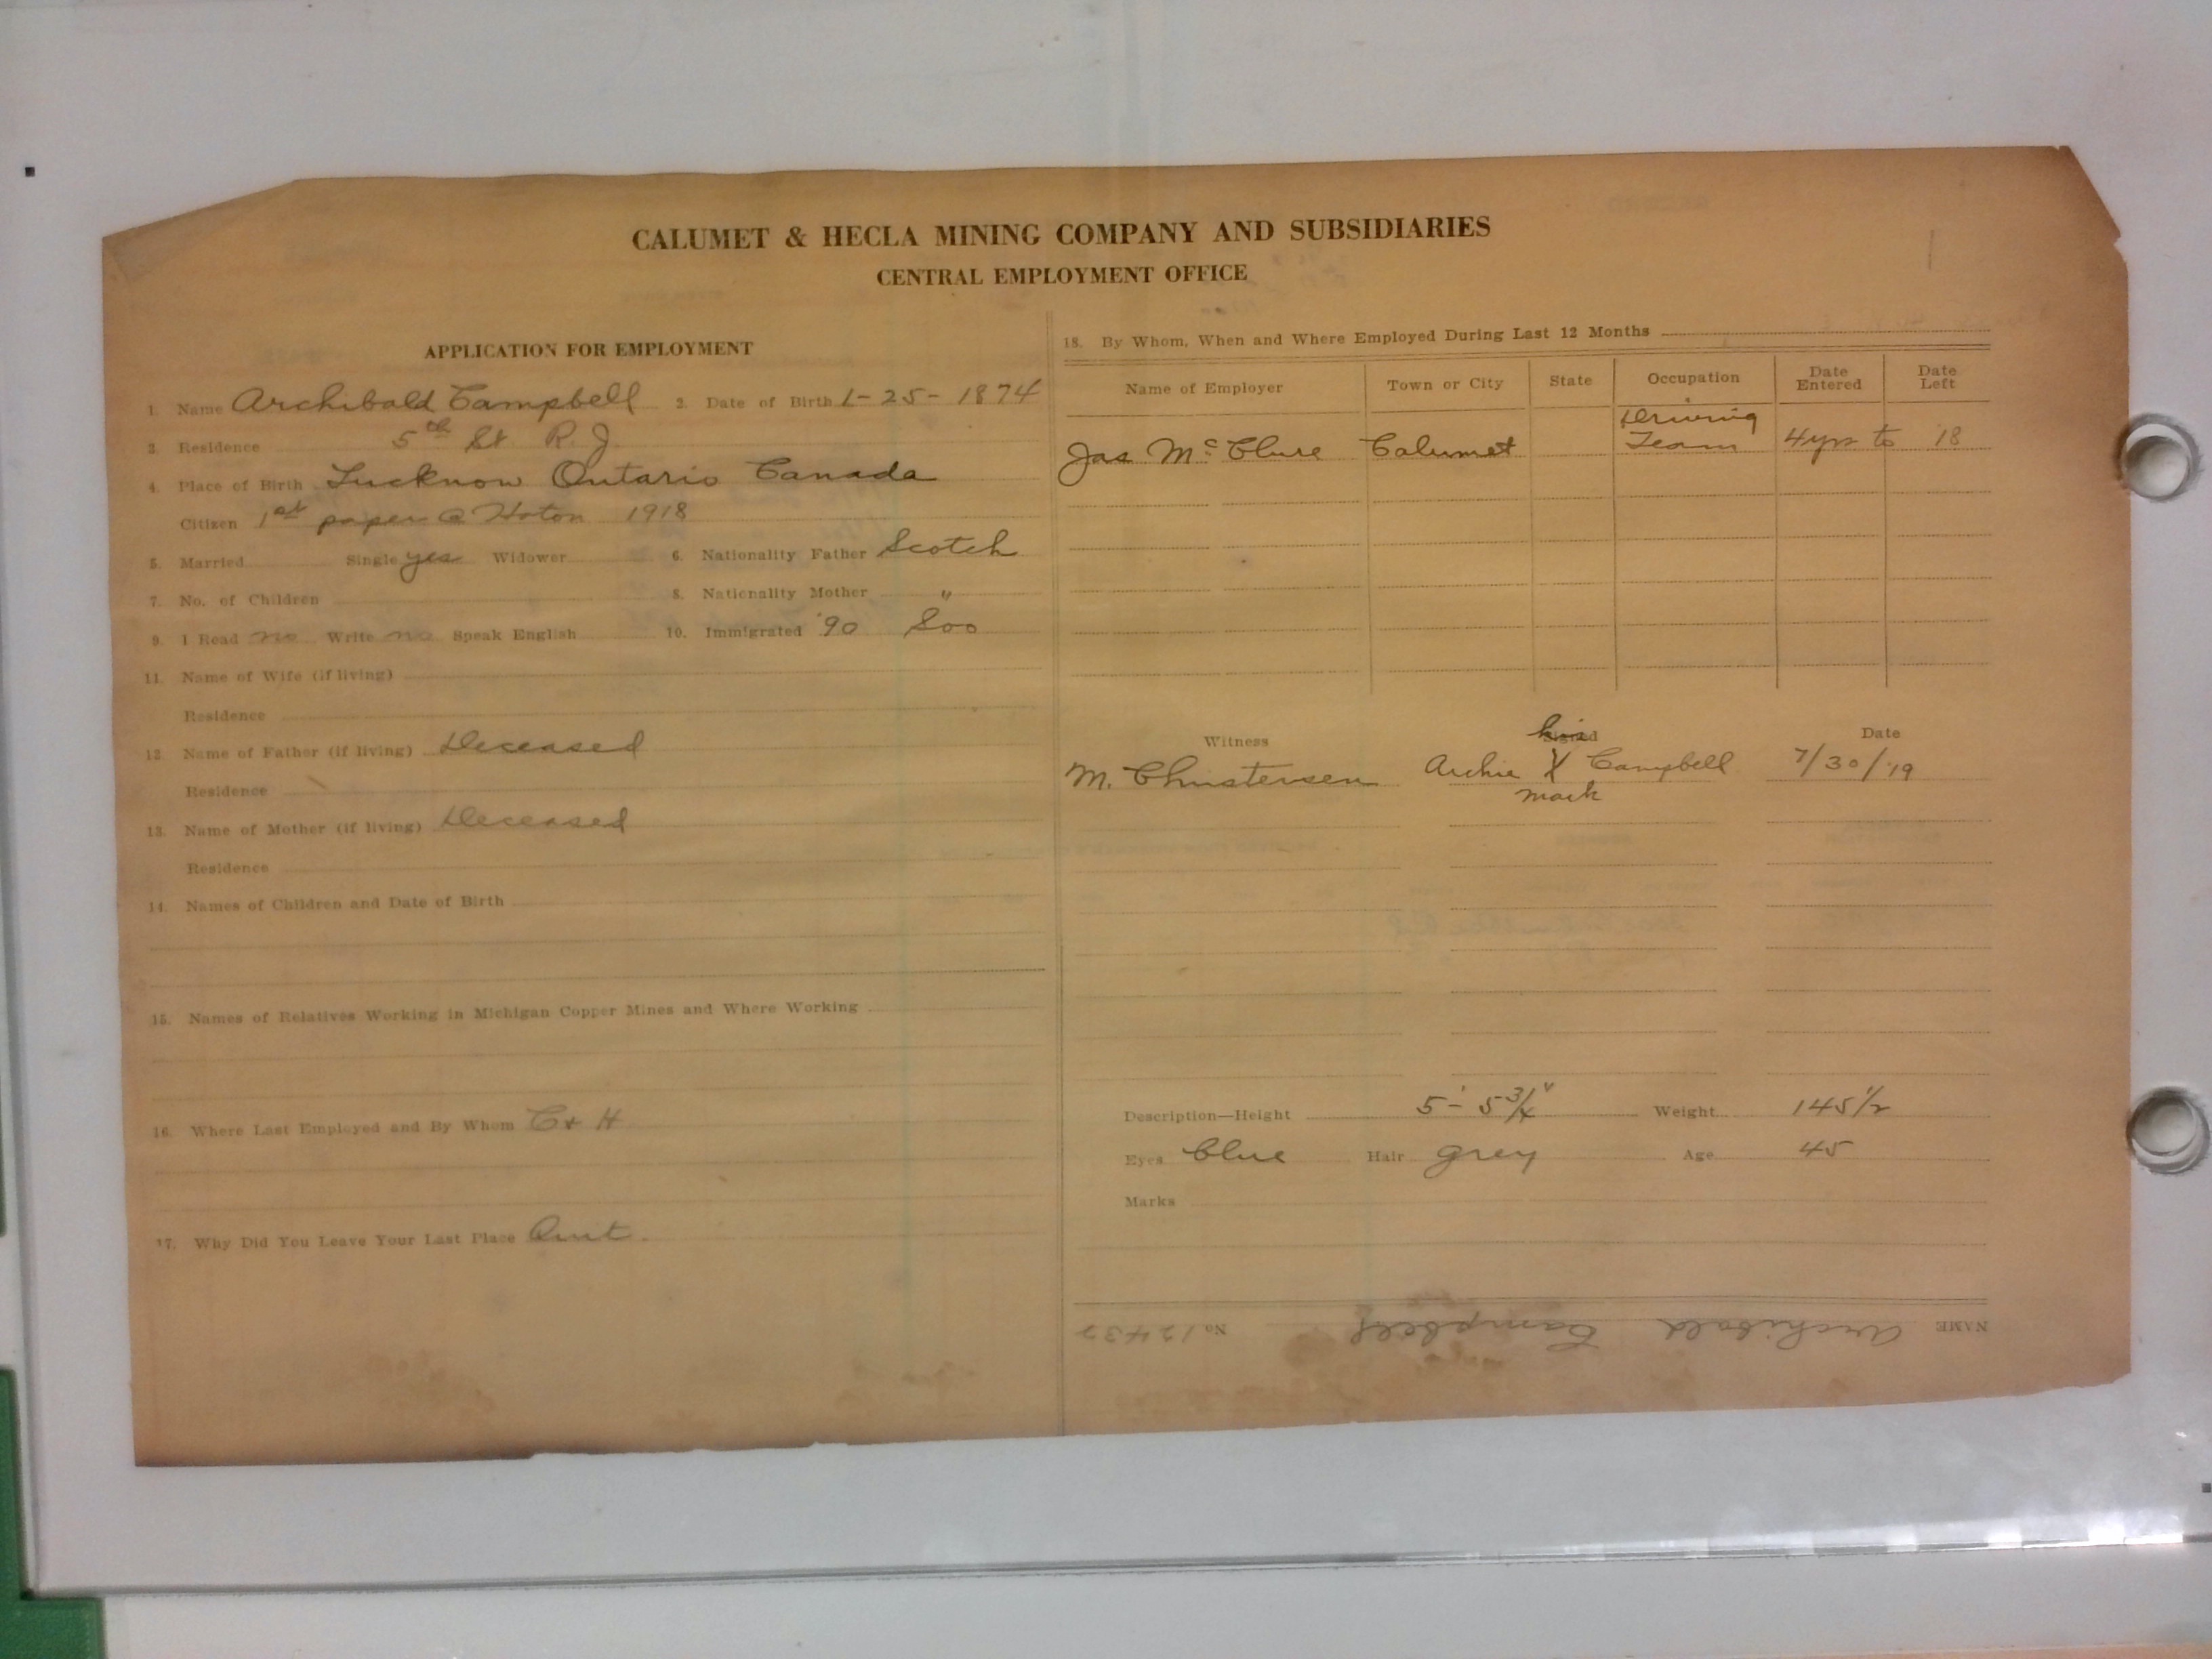 CALUMET & HECLA MINING COMPANY AND SUBSIDIARIES
CENTRAL EMPLOYMENT OFFICE
APPLICATION FOR EMPLOYMENT
1. Name Archibald Campbell 2. Date of Birth 1-25-1874
3. Residence 5th St R. J.
4. Place of Birth Lucknow Ontario Canada
Citizen 1st paper @ Hoton 1918
5. Married Single yes Widower 6. Nationality Father Scotch
7. No. of Children 8. Nationality Mother "
9. I Read no Write no Speak English 10. Immigrated '90 Soo
11. Name of Wife (if living)
Residence
12. Name of Father (if living) Deceased
Residence
13. Name of Mother (if living) Deceased
Residence
14. Names of Children and Date of Birth
15. Names of Relatives Working in Michigan Copper Mines and Where Working
16. Where Last Employed and By Whom C + H
17. Why Did You Leave Your Last Place Quit.
18. By Whom, When and Where Employed During Last 12 Months
Name of Employer Town or City State Occupation Date Entered Date Left
Jas McClure Calumet Driving Team 4 yrs to '18
Witness Signed Date
his
M. Christensen Archie X Campbell 7/30/19
mark
Description—Height 5'-5 3/4" Weight 145 1/2
Eyes blue Hair grey Age 45
Marks
NAME Archibald Campbell No.